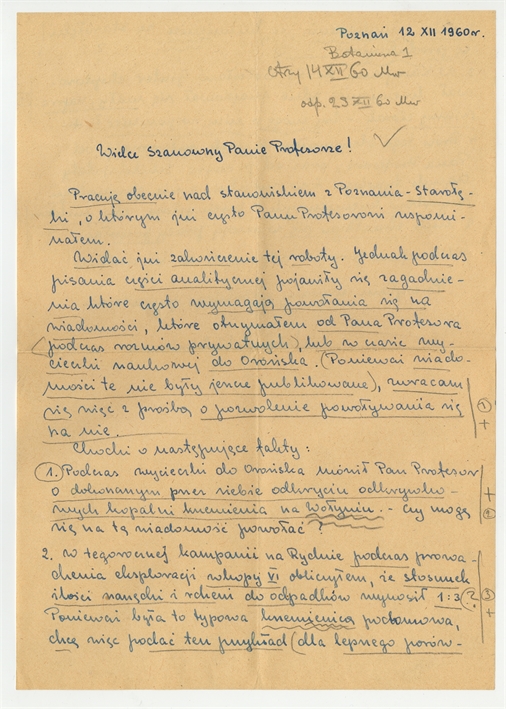 Poznań 12 XII 1960 r.
Botaniczna 1
otrz 14 XII 60
odp. 23 XII 60
Wielce Szanowny Panie Profesorze!
Pracuję obecnie nad stanowiskiem z Poznania - Starołę-
ki, o którym już często Panu Profesorowi wspomi-
nałem.
Widać już zakończenie tej roboty. Jednak podczas
pisania części analitycznej pojawiły się zagadnie-
nia które często wymagają powołania się na
wiadomości, które otrzymałem od Pana Profesora
(podczas rozmów prywatnych), lub w czasie wy-
cieczki naukowej do Orońska. (Ponieważ wiado-
mości te nie były jeszcze publikowane), zwracam
się więc z prośbą o pozwolenie powoływania się
na nie.
1
+
Chodzi o następujące fakty:
1. Podczas wycieczki do Orońska mówił Pan Profesor
o dokonanym przez siebie odkryciu odkrywko-
wych kopalni krzemienia na Wołyniu. - Czy mogę
się na tą wiadomość powołać?
+
2
2. w tegorocznej kampanii na Rydnie podczas prowa-
dzenia eksploracji wykopu VI obliczyłem, że stosunek
ilości narzędzi i rdzeni do odpadków wynosił 1:3 ?
Ponieważ była to typowa krzemienica podomowa,
chcę więc podać ten przykład (dla lepszego porów-
3
+